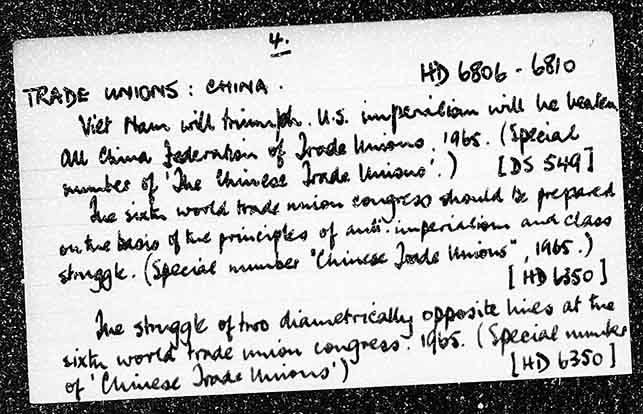 4.
HD 6806 - 6810
TRADE UNIONS : CHINA .
Viet Nam will triumph. U.S. imperialism will be beaten
All China Federation of Trade Unions. 1965. (Special
number of 'The Chinese Trade Unions'.) [DS 549]
The sixth world trade union congress should be prepared
on the basis of the principles of anti-imperialism and class
struggle. (Special number "Chinese Trade Unions", 1965.)
[HD 6350]
The struggle of two diametrically opposite lines at the
sixth world trade union congress. 1965. (Special number
of 'Chinese Trade Unions') [HD 6350]